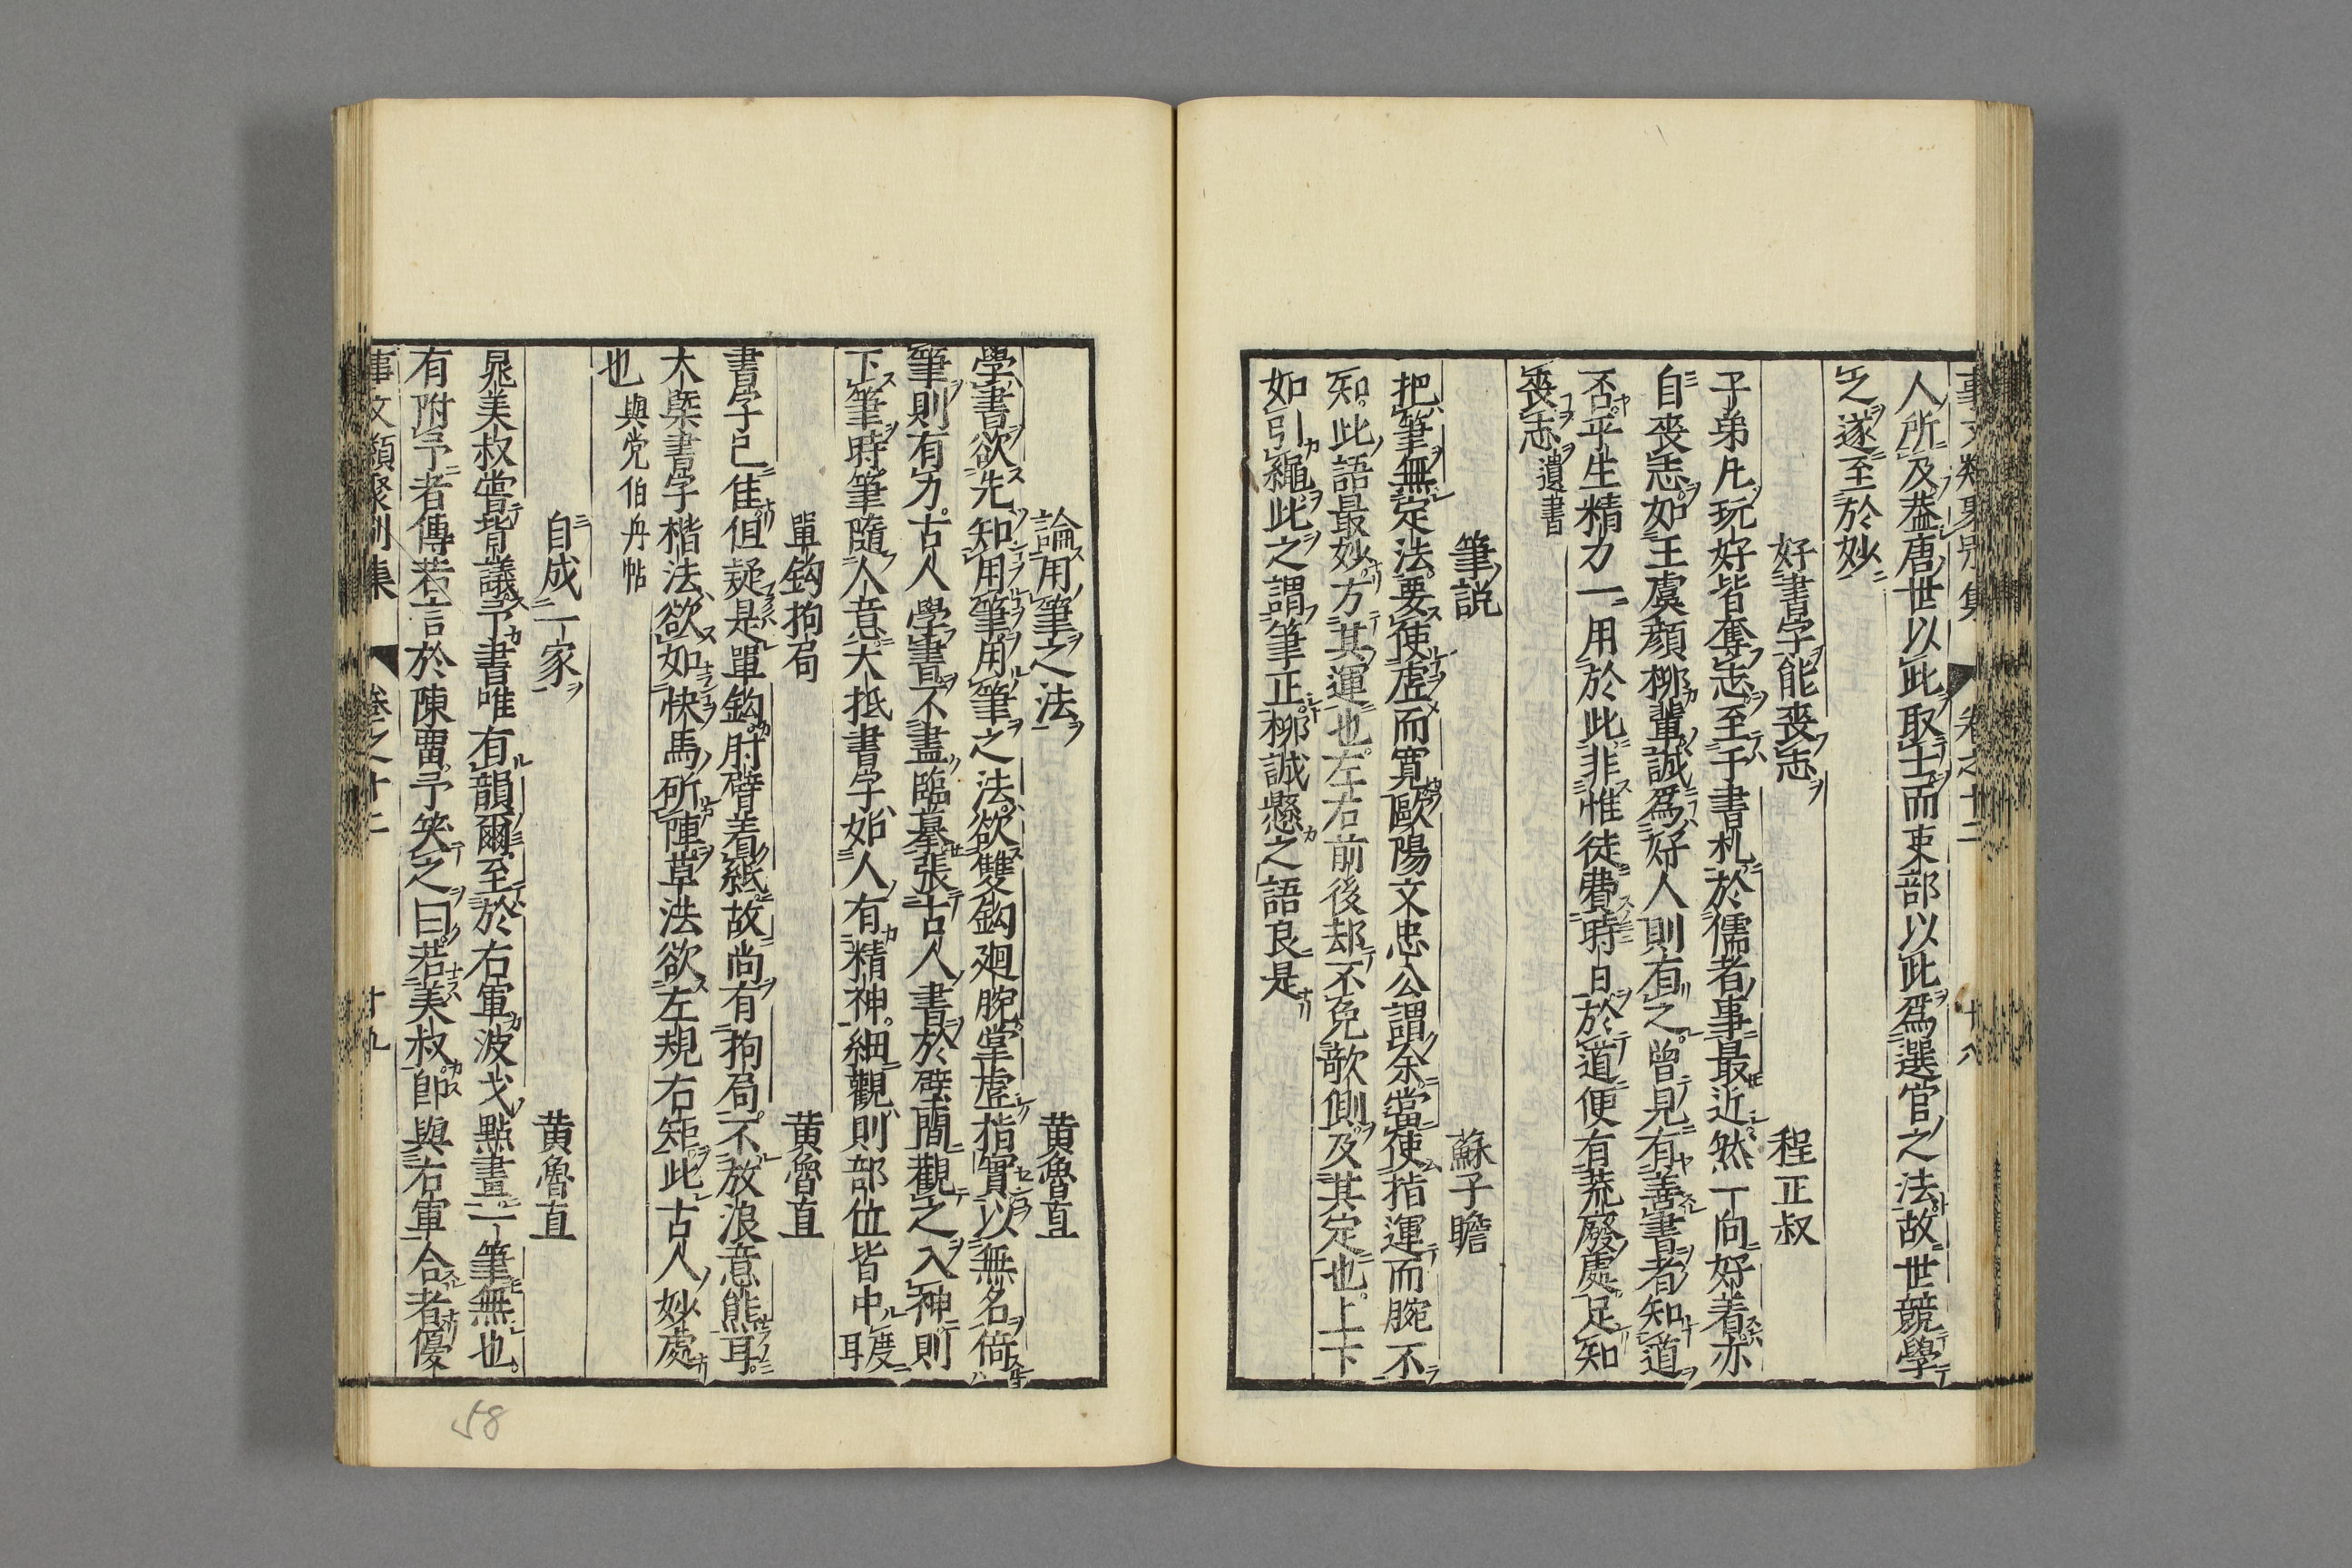 事文類聚別集 卷之十二 十八
人所及蓋唐世以此取士而吏部以此爲選官之法故世競學
之遂至於妙
好書字能喪志 程正叔
子弟凡玩好皆奪志至于書札於儒者事最近然一向好着亦
自喪志如王虞顔柳輩誠爲好人則有之曽見有善書者知道
否平生精力一用於此非惟徒費時日於道便有荒廢處足知
喪志 遺書
筆説 蘇子瞻
把筆無定法要使虚而寛歐陽文忠公謂余當使指運而腕不
知此語最妙方其運也左右前後却不免欹側及其定也上下
如引繩此之謂筆正柳誠懸之語良是
論用筆之法 黄魯直
學書欲先知用筆用筆之法欲雙鈎廻腕掌虚指實以無名倚
筆則有力古人學書不盡臨摹張古人書於壁間觀之入神則
下筆時筆隨人意大抵書字如人有精神細觀則部位皆中度耳
單鈎拘局 黄魯直
書字已佳但疑是單鈎肘臂着紙故尚有拘局不放浪意態耳
大槩書字楷法欲如快馬斫陣草法欲左規右矩此古人妙處
也 與党伯舟帖
自成一家 黄魯直
晁美叔嘗背議予書唯有韻爾至於右軍波戈點畫一筆無也
有附予者傳若言於陳留予笑之曰若美叔卽與右軍合者優
事文類聚別集 卷之十二 十九
58